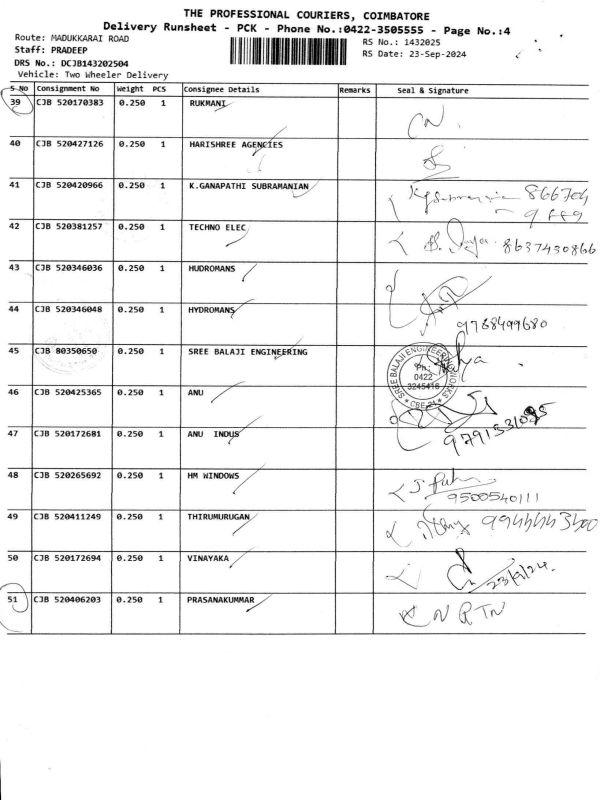 THE PROFESSIONAL COURIERS, COIMBATORE
Delivery Runsheet - PCK - Phone No.:0422-3505555 - Page No.:4
Route: MADUKKARAI ROAD RS No.: 1432025
Staff: PRADEEP RS Date: 23-Sep-2024
DRS No.: DCJB143202504
Vehicle: Two Wheeler Delivery
S No Consignment No Weight PCS Consignee Details Remarks Seal & Signature
39 CJB 520170383 0.250 1 RUKMANI CN.
40 CJB 520427126 0.250 1 HARISHREE AGENCIES
41 CJB 520420966 0.250 1 K.GANAPATHI SUBRAMANIAN
42 CJB 520381257 0.250 1 TECHNO ELEC 8637430866
43 CJB 520346036 0.250 1 HUDROMANS
44 CJB 520346048 0.250 1 HYDROMANS 9788499680
45 CJB 80350650 0.250 1 SREE BALAJI ENGINEERING
SREE BALAJI ENGINEERING WORKS
Ph.:
0422
3245416
CBE-21
46 CJB 520425365 0.250 1 ANU
47 CJB 520172681 0.250 1 ANU INDUS
48 CJB 520265692 0.250 1 HM WINDOWS 9500540111
49 CJB 520411249 0.250 1 THIRUMURUGAN
50 CJB 520172694 0.250 1 VINAYAKA 23/9/24.
51 CJB 520406203 0.250 1 PRASANAKUMMAR RTN